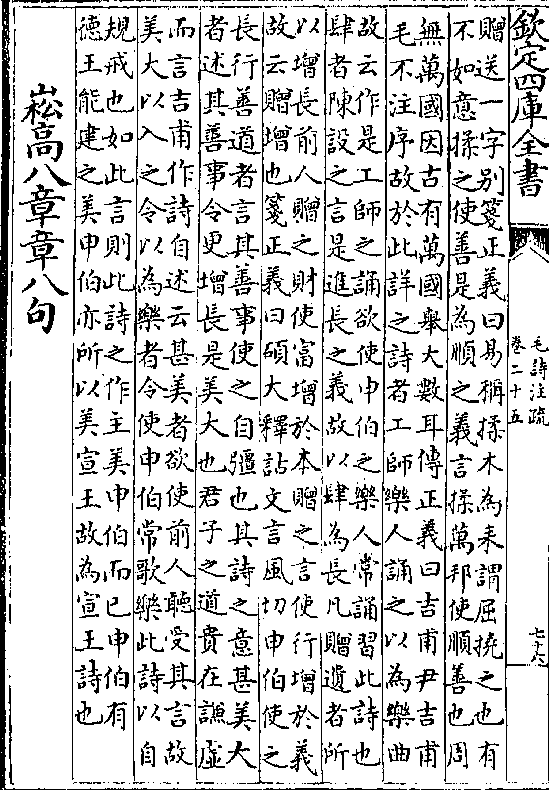 欽定四庫全書
毛詩注疏
卷二十五
七十六
贈送一字别箋正義曰易稱揉木為耒謂屈撓之也有
不如意揉之使善是為順之義言揉萬邦使順善也周
無萬國因古有萬國舉大數耳傳正義曰吉甫尹吉甫
毛不注序故於此詳之詩者工師樂人誦之以為樂曲
故云作是工師之誦欲使申伯之樂人常誦習此詩也
肆者陳設之言是進長之義故以肆為長凡贈遺者所
以增長前人贈之財使富增於本贈之言使行增於義
故云贈增也箋正義曰碩大釋詁文言風切申伯使之
長行善道者言其善事使之自彊也其詩之意甚美大
者述其善事令更增長是美大也君子之道貴在謙虚
而言吉甫作詩自述云甚美者欲使前人聽受其言故
美大以入之令以為樂者令使申伯常歌樂此詩以自
規戒也如此言則此詩之作主美申伯而已申伯有
德王能建之美申伯亦所以美宣王故為宣王詩也
崧高八章章八句